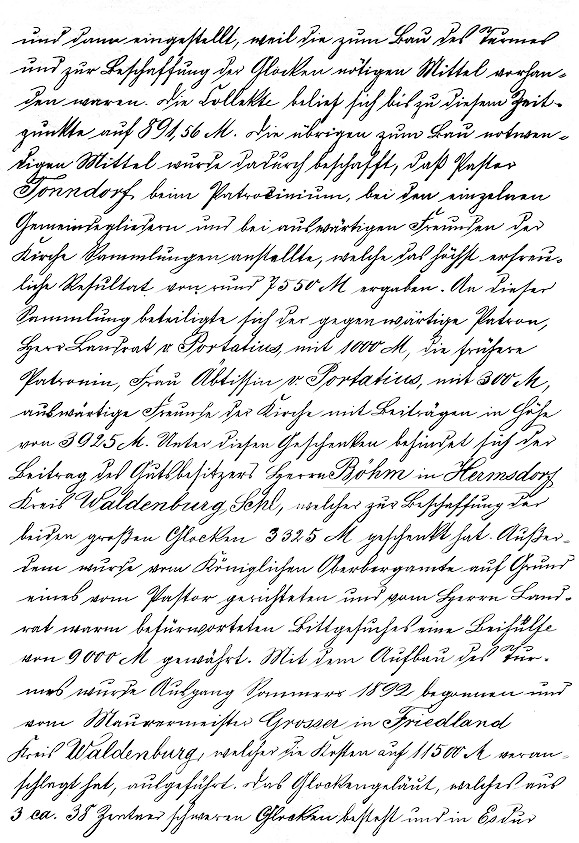 und dann eingestellt, weil die zum Bau des Turmes
und zur Beschaffung der Glocken nötigen Mittel vorhan-
den waren. Die Collekte belief sich bis zu diesem Zeit-
punkte auf 891,56 M. Die übrigen zum Bau notwen-
digen Mittel wurde dadurch beschafft, daß Pastor
Tonndorf beim Patrocinium, bei den einzelnen
Gemeindegliedern und bei auswärtigen Freunden der
Kirche Sammlungen anstellte, welche das höchst erfreu-
liche Resultat von rund 7550 M ergaben. An dieser
Sammlung beteiligte sich der gegenwärtige Patron,
Herr Landrat v. Portatius, mit 1000 M, die frühere
Patronin, Frau Äbtissin v. Portatius, mit 300 M,
auswärtige Freunde der Kirche mit Beiträgen in Höhe
von 3925 M. Unter diesen Geschenken befindet sich der
Beitrag des Gutsbesitzers Herrn Böhm in Hermsdorf
Kreis Waldenburg, Schl., welcher zur Beschaffung der
beiden großen Glocken 3325 M geschenkt hat. Außer-
dem wurde vom Königlichen Oberbergamte auf Grund
eines vom Pastor gerichteten und vom Herrn Land-
rat warm befürworteten Bittgesuches eine Beihülfe
von 9000 M gewährt. Mit dem Aufbau des Tur-
mes wurde Ausgang Sommers 1892 begonnen und
vom Maurermeister Grosser in Friedland
Kreis Waldenburg, welcher die Kosten auf 11500 M veran-
schlagt hat, ausgeführt. Das Glockengeläut, welches aus
3 ca. 38 Zentner schweren Glocken besteht und in Es dur